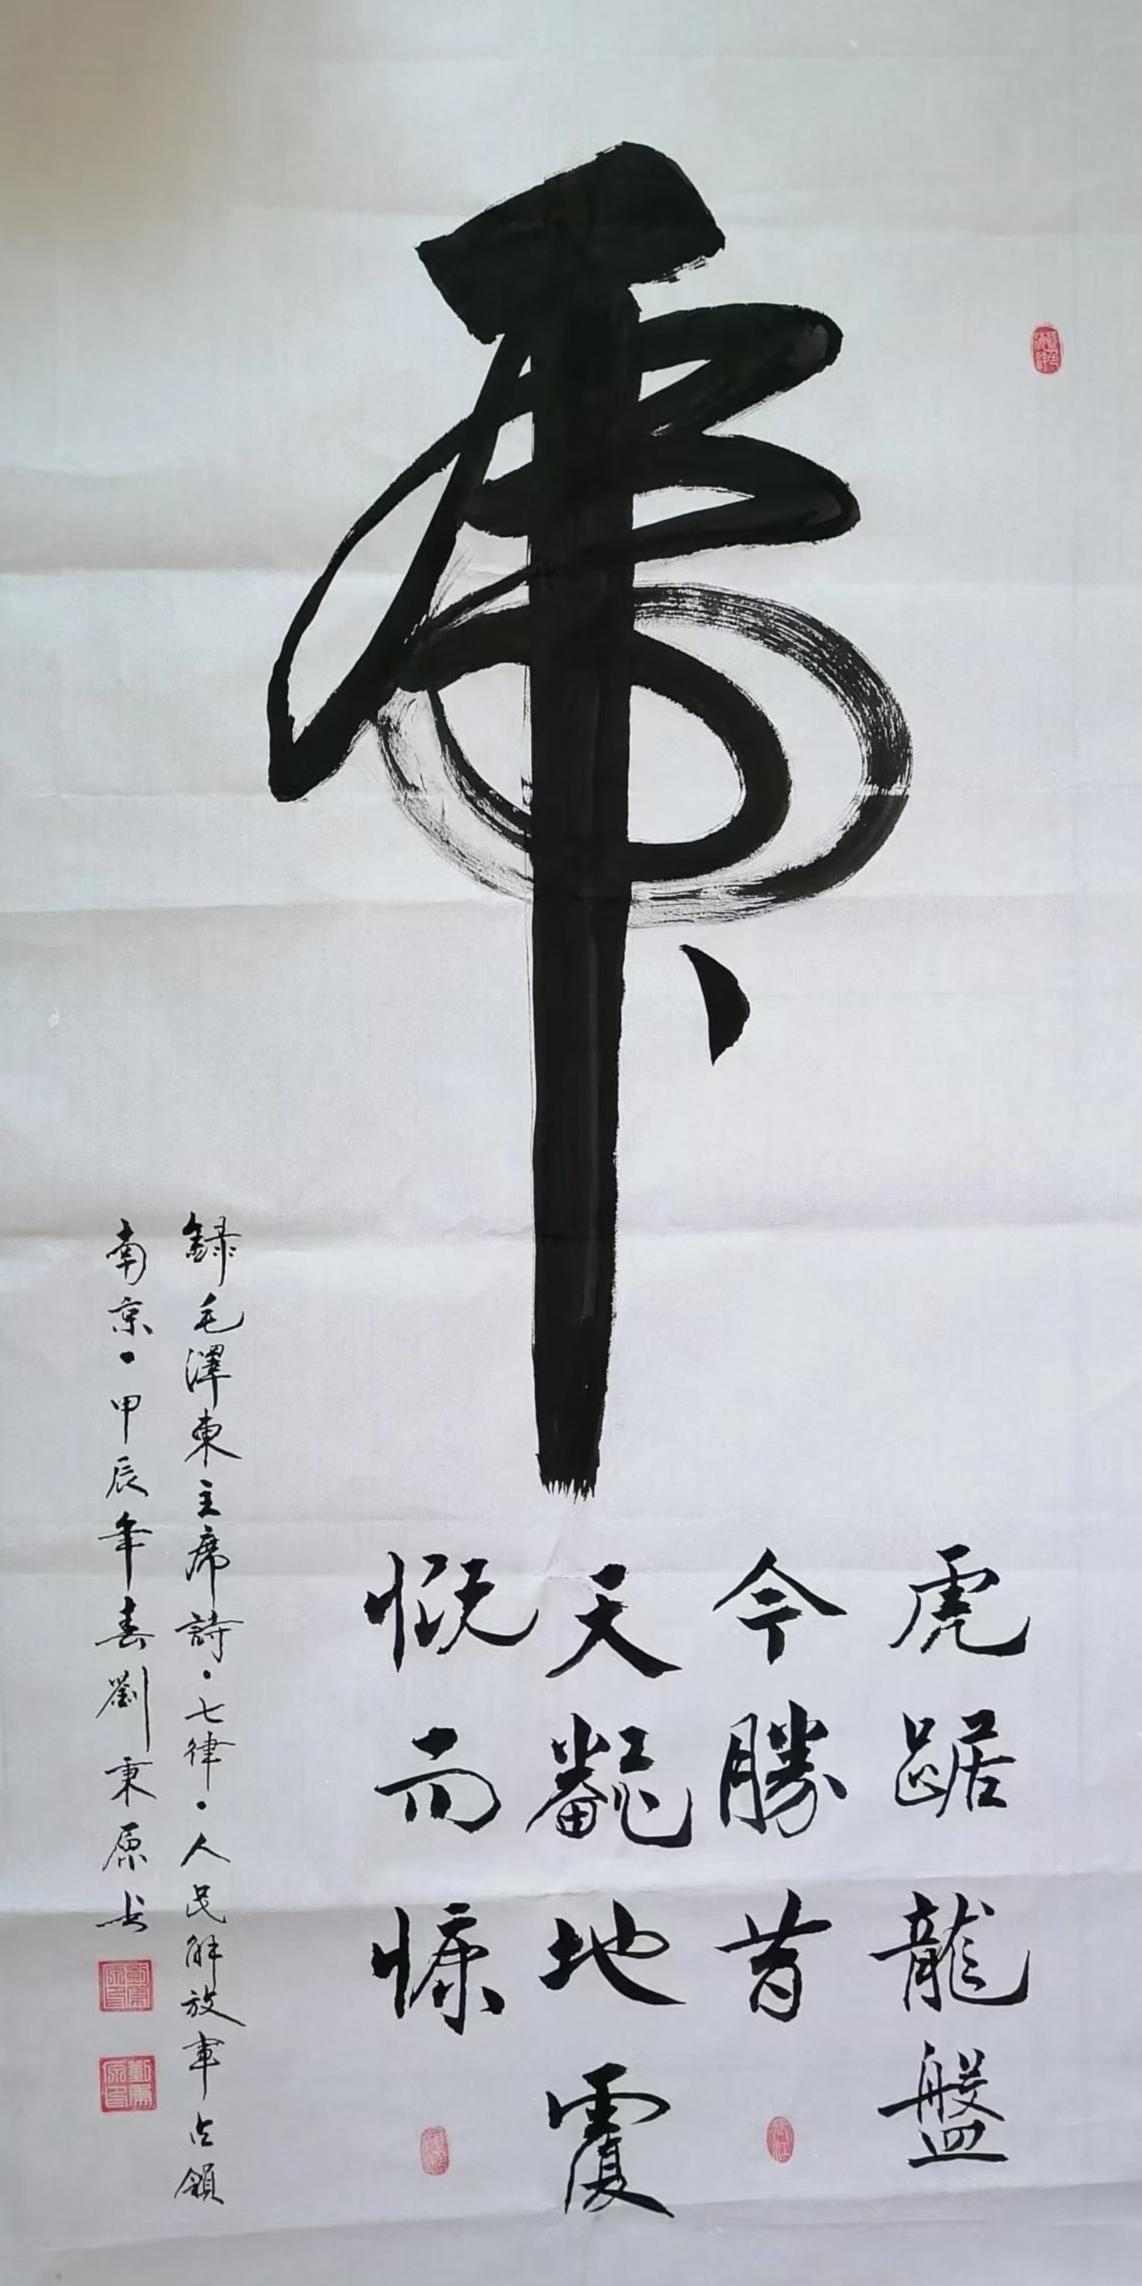 虎
虎踞龍盤
今勝昔
天飜地覆
慨而慷
録毛澤東主席詩·七律·人民解放軍占領
南京·甲辰年春劉秉原书